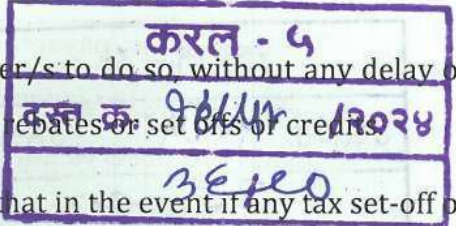 करल - ५
er/s to do so, without any delay o
दस्त क्र. /२०२४
rebates or set offs or credits.
hat in the event if any tax set-off o